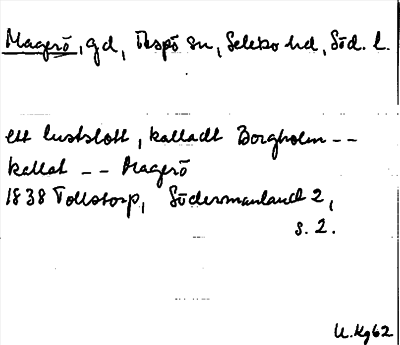 Magerö, gd, Taspö sn, Selebo hd, Söd. l.
ett lustslott, kalladt Borgholm --
kallat -- Magerö
1838 Tollstorp, Södermanland 2,
s. 2.
U.Hg62